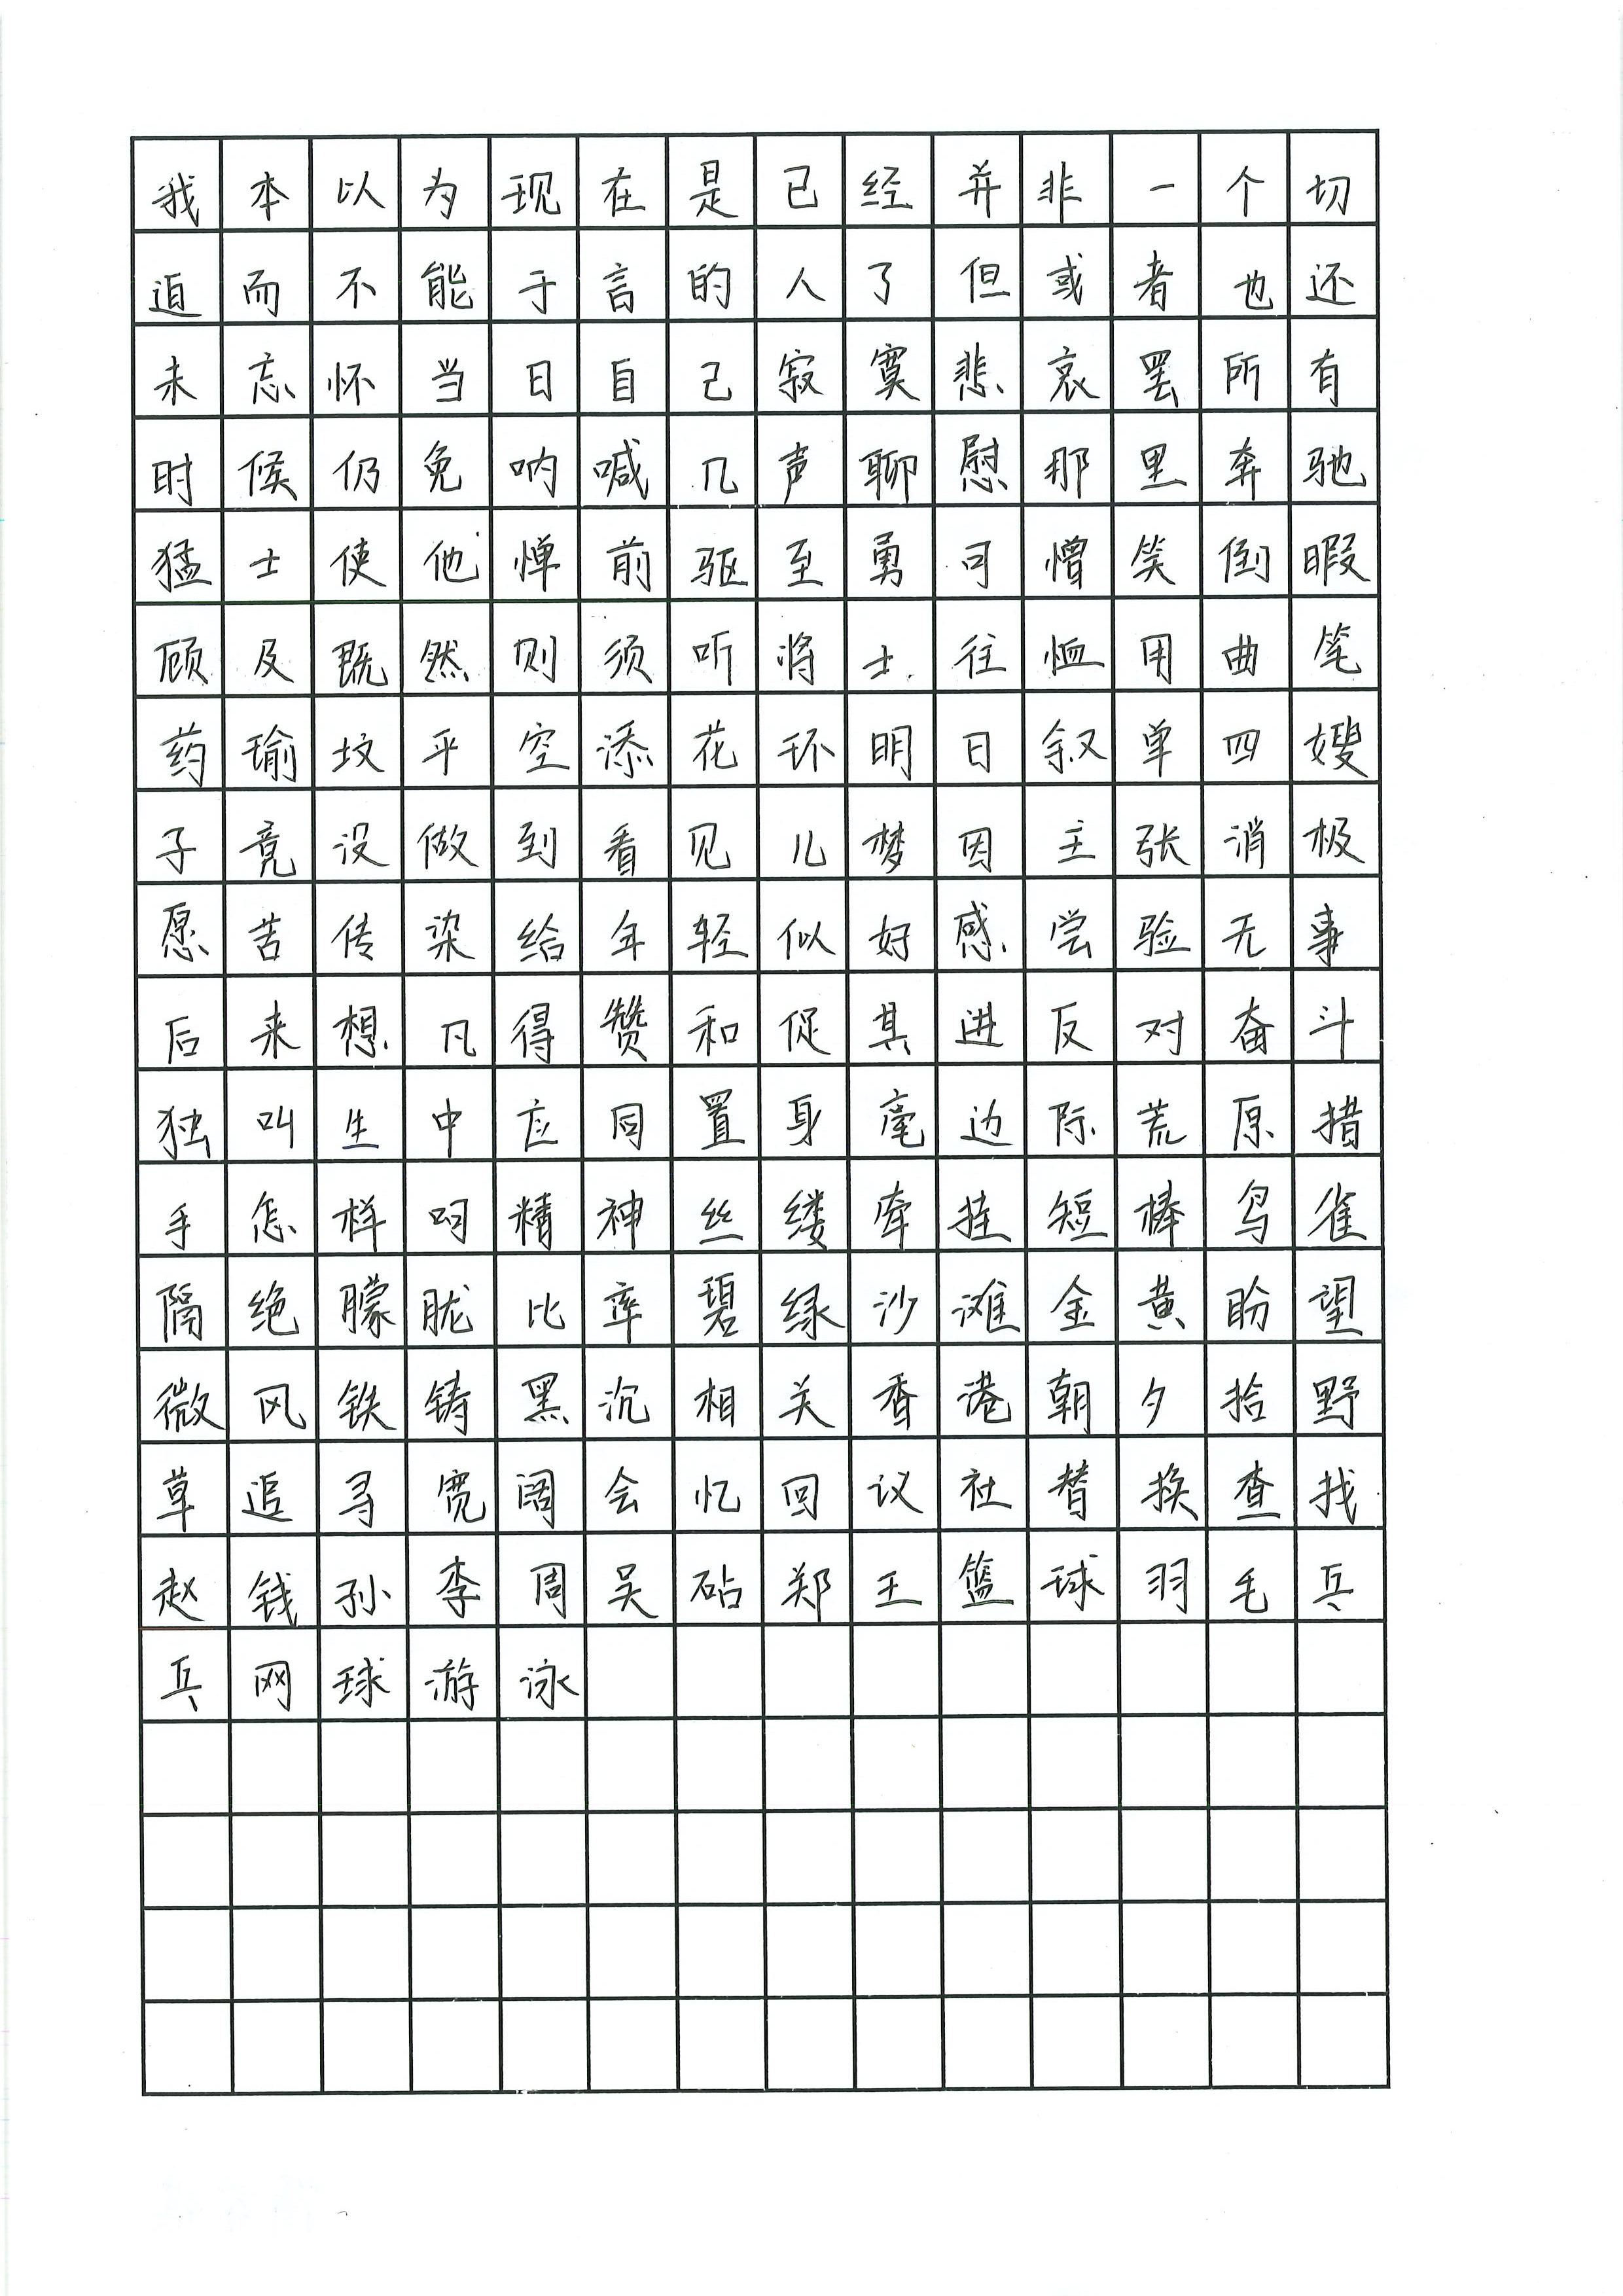 我本以为现在是已经并非一个切
迫而不能于言的人了但或者也还
未忘怀当日自己寂寞悲哀罢所有
时候仍免呐喊几声聊慰那里奔驰
猛士使他惮前驱至勇可憎笑倒暇
顾及既然则须听将士往恤用曲笔
药瑜坟平空添花环明日叙单四嫂
子竟没做到看见儿梦因主张消极
愿苦传染给年轻似好感尝验无事
后来想凡得赞和促其进反对奋斗
独叫生中应同置身毫边际荒原措
手怎样呵精神丝缕牵挂短棒鸟雀
隔绝朦胧比率碧绿沙滩金黄盼望
微风铁铸黑沉相关香港朝夕拾野
草追寻宽阔会忆回议社替换查找
赵钱孙李周吴砧郑王篮球羽毛乒
乓网球游泳